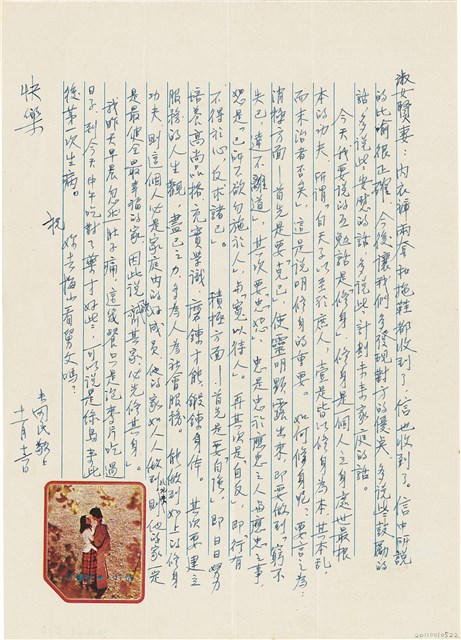 淑女賢妻：內衣褲兩套和拖鞋都收到了，信也收到了。信中所說
的比喻很正確，今後讓我們多發現對方的優美，多說些鼓勵的
話，多說些安慰的話，多說些計劃未來家庭的話。
今天我要說的互勉話是「修身」，修身是一個人立身處世最根
本的功夫，所謂「自天子以至於庶人，壹是皆以修身為本，其本亂，
而末治者否矣」，這是說明修身的重要。如何修身呢？要言之為：
消極方面—首先是要「克己」，使靈明顯露出來，即要做到「窮不
失己，達不離道」，其次要忠恕，忠是忠於應忠之人與應忠之事，
恕是「己所不欲勿施於人」，與「寬以待人」。再其次是自反，即「行有
不得於心，反求諸己」。積極方面—首先是要自強，即日日努力
培養高尚品格，充實學識，磨鍊才能，鍛鍊身体。其次要建立
服務的人生觀，盡己之力，多為人為社會服務。能做到如上的修身
功夫，則這個人必是家庭內的好成員，他的家如人人做到，則他的家一定
是最健全最幸福的家，因此說「齊其家必先修其身」。
我昨天早晨忽然肚子痛，這幾餐只是沖麥片吃過
日子，到今天中午吃對了藥才好些，可以說是徐鳥來此
後第一次生病。
祝
妳去梅山看舅父嗎？
快樂
敬上
十一月十二日
20110010522